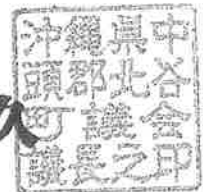 沖縄県中
頭郡北谷
町議会
議長之印